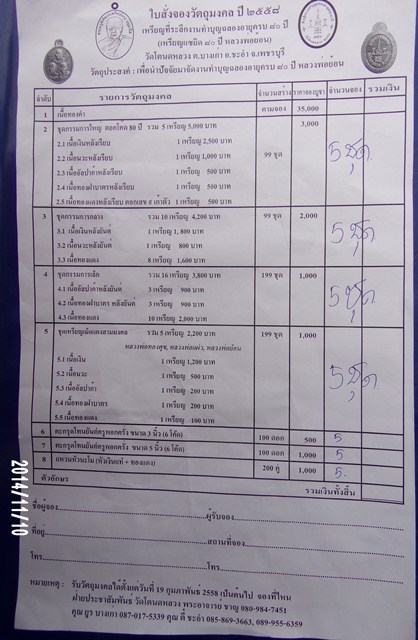 ใบสั่งจองวัตถุมงคล ปี ๒๕๕๘
เหรียญที่ระลึกงานทำบุญฉลองอายุครบ ๘๐ ปี
(เหรียญแซยิด ๘๐ ปี หลวงพ่อย้อน)
วัดโตนดหลวง ต.บางเก่า อ.ชะอำ จ.เพชรบุรี
วัตถุประสงค์ : เพื่อนำปัจจัยมาจัดงานทำบุญฉลองอายุครบ ๘๐ ปี หลวงพ่อย้อน
ลำดับ รายการวัตถุมงคล จำนวนสร้าง ราคาจองบูชา จำนวนจอง รวมเงิน
1 เนื้อทองคำ ตามจอง 35,000
2 ชุดกรรมการใหญ่ ตอกโคด 80 ปี รวม 5 เหรียญ 5,000 บาท 3,000
2.1 เนื้อเงินหลังเรียบ 1 เหรียญ 2,500 บาท
2.2 เนื้อนวะหลังเรียบ 1 เหรียญ 1,000 บาท 99 ชุด 5 ชุด
2.3 เนื้ออัลปาก้าหลังเรียบ 1 เหรียญ 500 บาท
2.4 เนื้อทองฝาบาตรหลังเรียบ 1 เหรียญ 500 บาท
2.5 เนื้อทองแดงหลังเรียบ ตอกเลข ๙ เก้าตัว 1 เหรียญ 500 บาท
3 ชุดกรรมการกลาง รวม 10 เหรียญ 4,200 บาท 99 ชุด 2,000
3.1 เนื้อเงินหลังยันต์ 1 เหรียญ 1,800 บาท 5 ชุด
3.2 เนื้อนวะหลังยันต์ 1 เหรียญ 800 บาท
3.3 เนื้อทองแดง 8 เหรียญ 1,600 บาท
4 ชุดกรรมการเล็ก รวม 16 เหรียญ 3,800 บาท 199 ชุด 1,000
4.1 เนื้ออัลปาก้าหลังยันต์ 3 เหรียญ 900 บาท 5 ชุด
4.2 เนื้อทองฝาบาตร หลังยันต์ 3 เหรียญ 900 บาท
4.3 เนื้อทองแดง 10 เหรียญ 2,000 บาท
5 ชุดเหรียญเม็ดแตงสามมงคล รวม 5 เหรียญ 2,200 บาท 199 ชุด 1,000
หลวงพ่อทองศุข, หลวงพ่อแผ่ว, หลวงพ่อย้อน
5.1 เนื้อเงิน 1 เหรียญ 1,200 บาท
5.2 เนื้อนวะ 1 เหรียญ 500 บาท 5 ชุด
5.3 เนื้ออัลปาก้า 1 เหรียญ 200 บาท
5.4 เนื้อทองฝาบาตร 1 เหรียญ 200 บาท
5.5 เนื้อทองแดง 1 เหรียญ 100 บาท
6 ตะกรุดโทนยันต์ครูพอกครั่ง ขนาด 3 นิ้ว (6 โค๊ด) 100 ดอก 500 5
7 ตะกรุดโทนยันต์ครูพอกครั่ง ขนาด 5 นิ้ว (6 โค๊ด) 100 ดอก 1,000 5
8 แหวนหัวนะโม (หัวเงินแท้ + ทองแดง) 200 คู่ 1,000 5.
ตัวอักษร รวมเงินทั้งสิ้น
ชื่อผู้จอง ผู้รับจอง
ที่อยู่ สถานที่จอง
โทร โทร
หมายเหตุ : รับวัตถุมงคลได้ตั้งแต่วันที่ 19 กุมภาพันธ์ 2558 เป็นต้นไป จองที่ไหน
ฝ่ายประชาสัมพันธ์ วัดโตนดหลวง พระอาจารย์ ชาญ 080-984-7451
คุณ ยูร บางเก่า 087-017-5339 คุณ ตี๋ ชะอำ 085-869-3663, 089-955-6359
2014/11/10